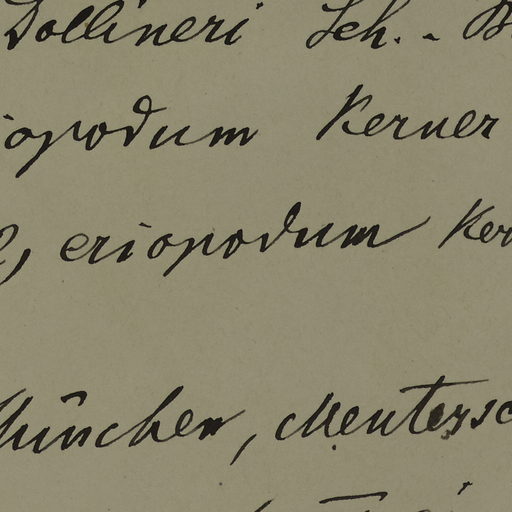 Dollineri Sch. - B
iopodum Kerner
), eriopodum Ker
München, Mentersc